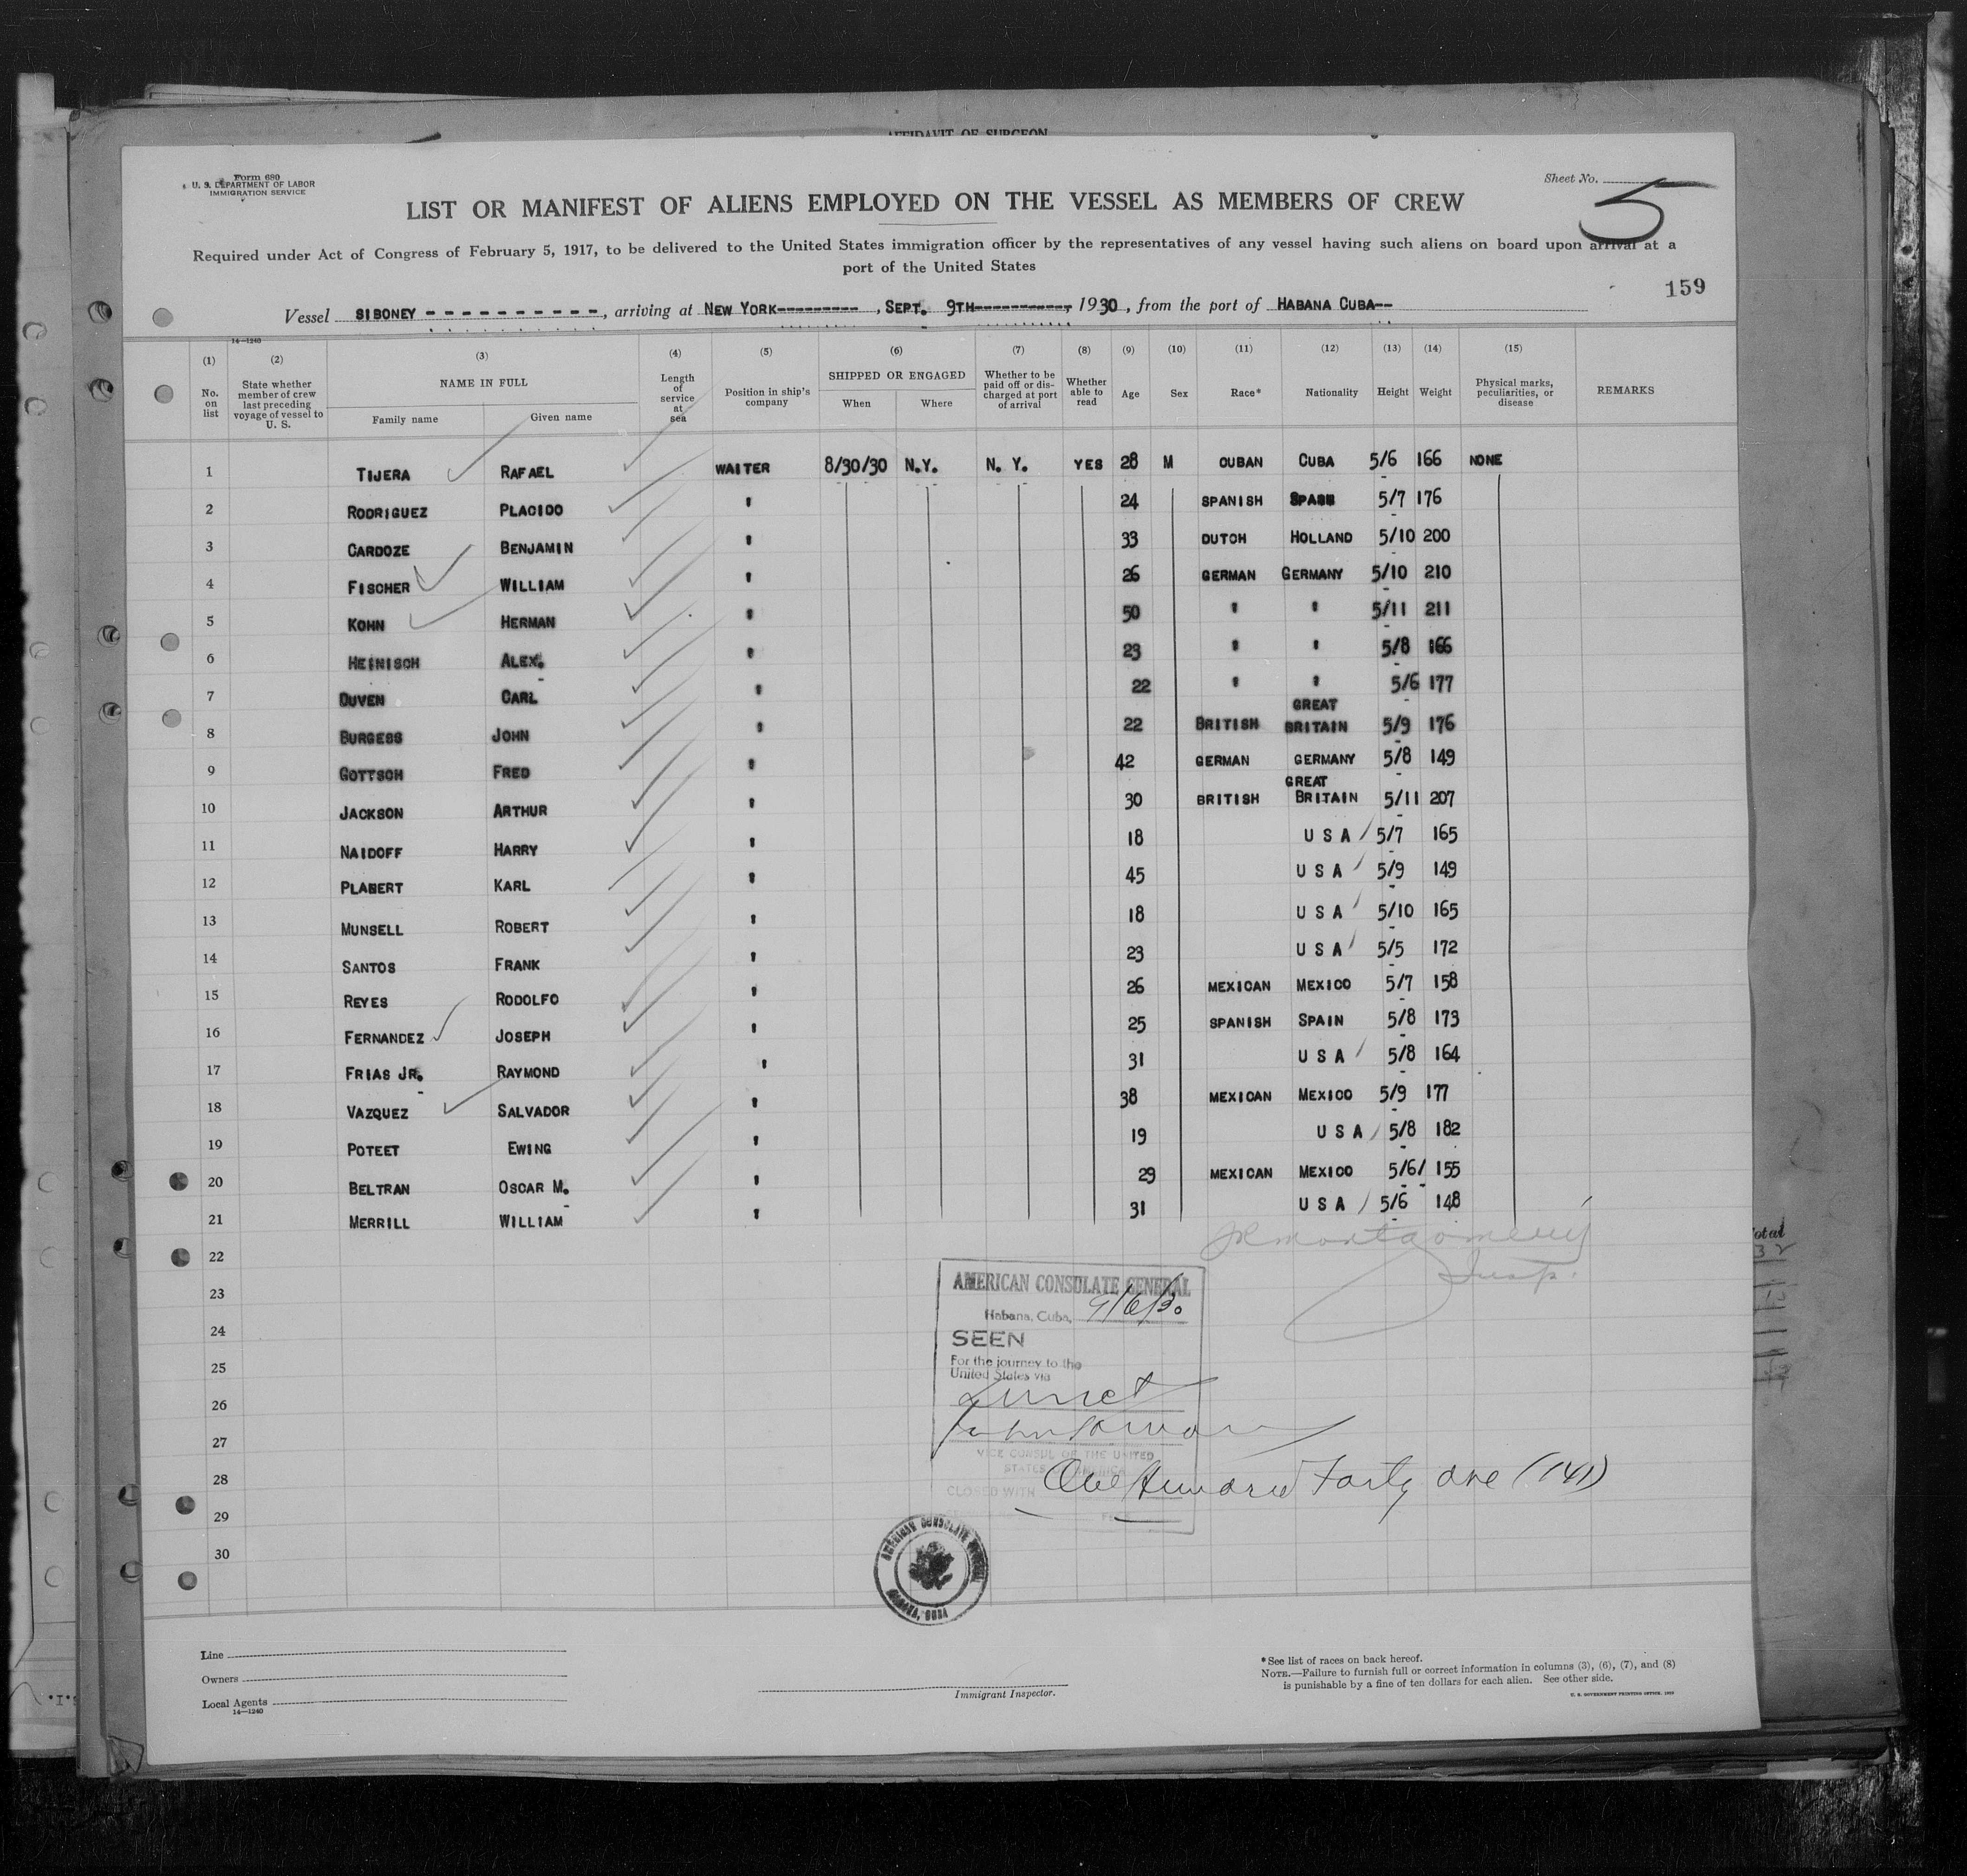 AFFIDAVIT OF SURGEON
Form 680
U. S. DEPARTMENT OF LABOR
IMMIGRATION SERVICE
Sheet No. 5
LIST OR MANIFEST OF ALIENS EMPLOYED ON THE VESSEL AS MEMBERS OF CREW
Required under Act of Congress of February 5, 1917, to be delivered to the United States immigration officer by the representatives of any vessel having such aliens on board upon arrival at a
port of the United States
159
Vessel SIBONEY - - - - - - - - - -, arriving at NEW YORK---------, SEPT. 9TH-----------, 1930, from the port of HABANA CUBA--
14-1240
(1) (2) (3) (4) (5) (6) (7) (8) (9) (10) (11) (12) (13) (14) (15)
No. on list State whether member of crew last preceding voyage of vessel to U. S. NAME IN FULL Family name Given name Length of service at sea Position in ship's company SHIPPED OR ENGAGED When Where Whether to be paid off or discharged at port of arrival Whether able to read Age Sex Race* Nationality Height Weight Physical marks, peculiarities, or disease REMARKS
1 TIJERA RAFAEL WAITER 8/30/30 N.Y. N. Y. YES 28 M CUBAN CUBA 5/6 166 NONE
2 RODRIGUEZ PLACIDO " 24 SPANISH SPAIN 5/7 176
3 CARDOZE BENJAMIN " 33 DUTCH HOLLAND 5/10 200
4 FISCHER WILLIAM " 26 GERMAN GERMANY 5/10 210
5 KOHN HERMAN " 50 " " 5/11 211
6 HEINISCH ALEX. " 23 " " 5/8 166
7 DUVEN CARL " 22 " " 5/6 177
8 BURGESS JOHN " 22 BRITISH GREAT BRITAIN 5/9 176
9 GOTTSCH FRED " 42 GERMAN GERMANY 5/8 149
10 JACKSON ARTHUR " 30 BRITISH GREAT BRITAIN 5/11 207
11 NAIDOFF HARRY " 18 U S A 5/7 165
12 PLABERT KARL " 45 U S A 5/9 149
13 MUNSELL ROBERT " 18 U S A 5/10 165
14 SANTOS FRANK " 23 U S A 5/5 172
15 REYES RODOLFO " 26 MEXICAN MEXICO 5/7 158
16 FERNANDEZ JOSEPH " 25 SPANISH SPAIN 5/8 173
17 FRIAS JR. RAYMOND " 31 U S A 5/8 164
18 VAZQUEZ SALVADOR " 38 MEXICAN MEXICO 5/9 177
19 POTEET EWING " 19 U S A 5/8 182
20 BELTRAN OSCAR M. " 29 MEXICAN MEXICO 5/6/ 155
21 MERRILL WILLIAM " 31 U S A 5/6 148
22
23
24
25
26
27
28
29
30
JRMontgomery
Insp.
AMERICAN CONSULATE GENERAL
Habana, Cuba, 9/6/30
SEEN
For the journey to the
United States via
VICE CONSUL OF THE UNITED
STATES AMERICA
CLOSED WITH
One Hundred Forty one (141)
AMERICAN CONSULATE GENERAL
HABANA, CUBA
Line
Owners
Local Agents
14-1240
Immigrant Inspector.
*See list of races on back hereof.
NOTE.—Failure to furnish full or correct information in columns (3), (6), (7), and (8)
is punishable by a fine of ten dollars for each alien. See other side.
U. S. GOVERNMENT PRINTING OFFICE